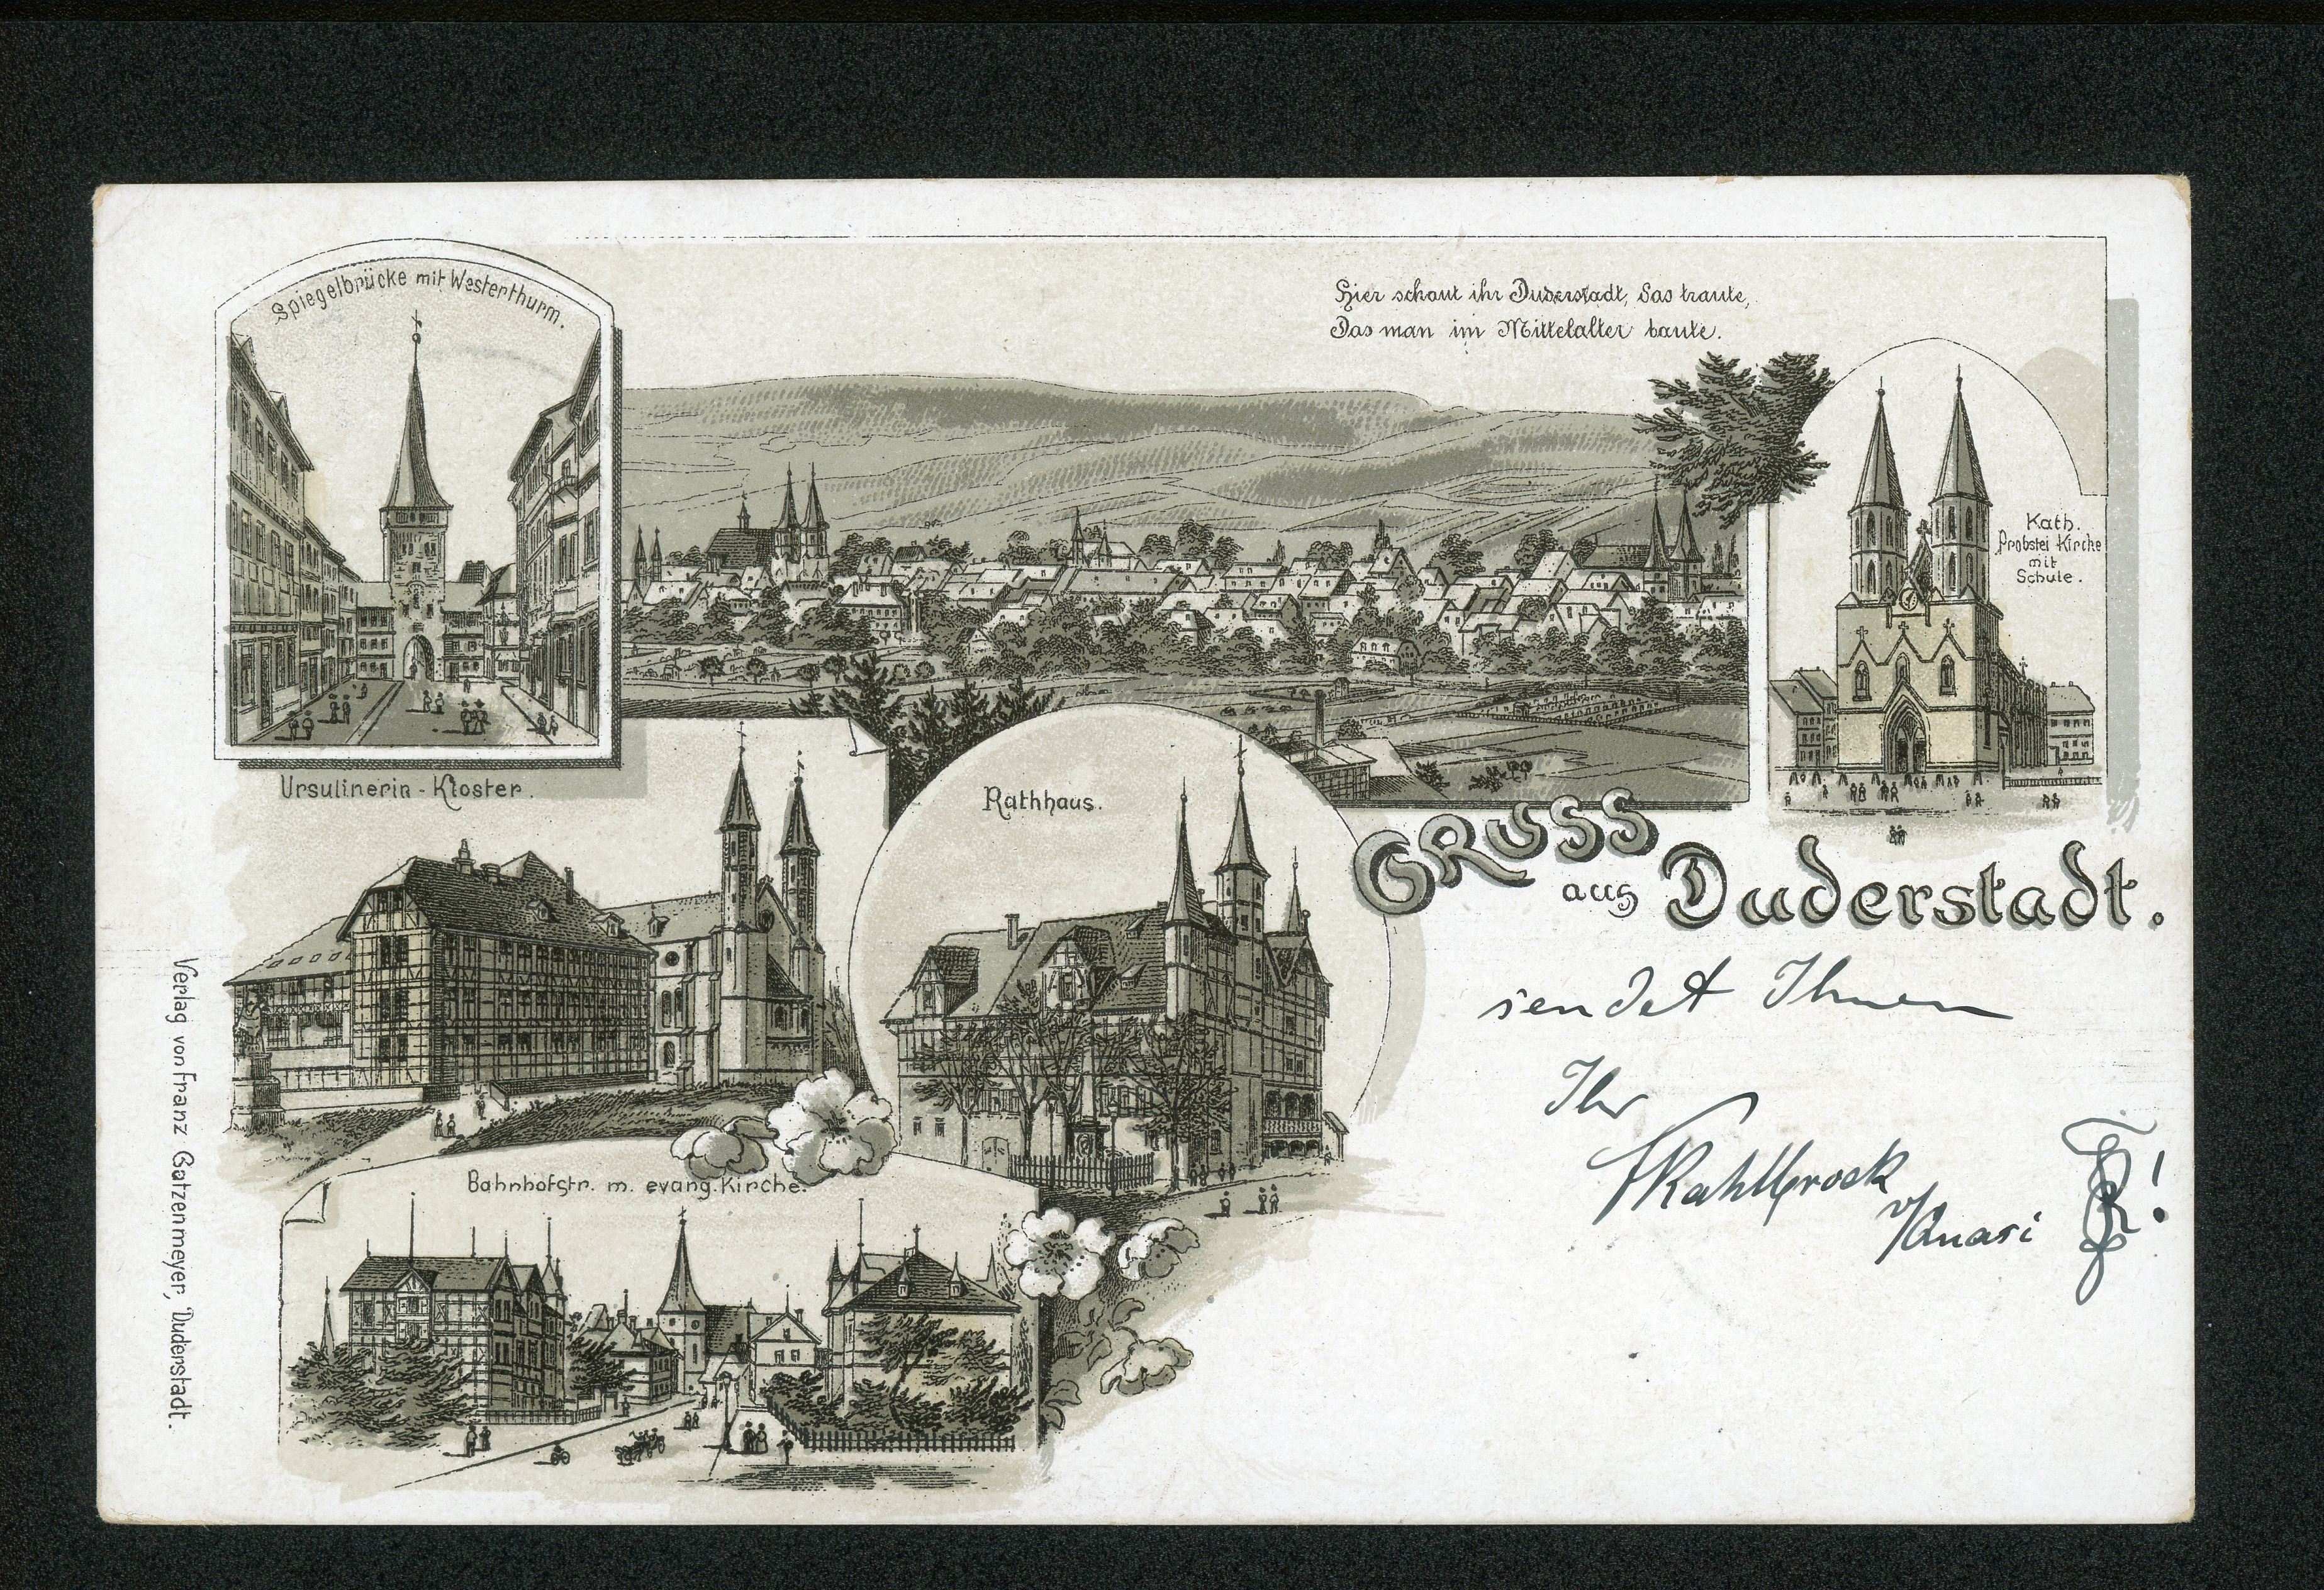 Spiegelbrücke mit Westerthurm.
Hier schaut ihr Duderstadt, das traute,
Das man im Mittelalter baute.
Kath.
Probstei Kirche
mit
Schule.
Ursulinerin - Kloster.
Rathhaus.
GRUSS
aus Duderstadt.
sendet Ihnen
Ihr
Kahlbrock
Bahnhofstr. m. evang. Kirche.
Verlag von Franz Gatzenmeyer, Duderstadt.